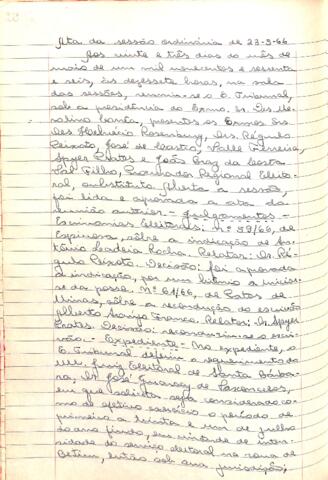 Ata da sessão ordinária de 23-5-66
Aos vinte e três dias do mês de
maio de um mil novecentos e sessenta
e seis, às dezessete horas, na sala
das sessões, reuniu-se o E. Tribunal,
sob a presidência do Exmo. Sr. Des.
Costa, presentes os Exmos Srs.
Des. Rosenburg, Drs. Régulo
Peixoto, José de Castro, Valle Ferreira,
Spyer Prates e João Braz da Costa
Val Filho, Procurador Regional Eleito-
ral, substituto. Aberta a sessão,
foi lida e aprovada a ata da
reunião anterior. - Julgamentos -
Escrivanias Eleitorais: nº 59/66, de
Espinosa, sôbre a indicação de An-
tônio Rocha. Relator: Dr. Ré-
gulo Peixoto. Decisão: foi aprovada
a indicação, por um biênio a iniciar-
se da posse. Nº 61/66, de Patos de
Minas, sôbre a recondução do escrivão
Alberto Araújo Franco. Relator: Dr. Spyer
Prates. Decisão: reconduziu-se o escri-
vão. - Expediente - No expediente, o
E. Tribunal deferiu o requerimento do
MM. Juiz Eleitoral de Santa Bárba-
ra, Dr. José de Vasconcelos,
em que solicita seja considerado co-
mo de efetivo exercício o período de
primeiro a trinta e um de julho
do ano findo, em virtude de inten-
sidade do serviço eleitoral na zona de
Betim, então sob sua jurisdição;